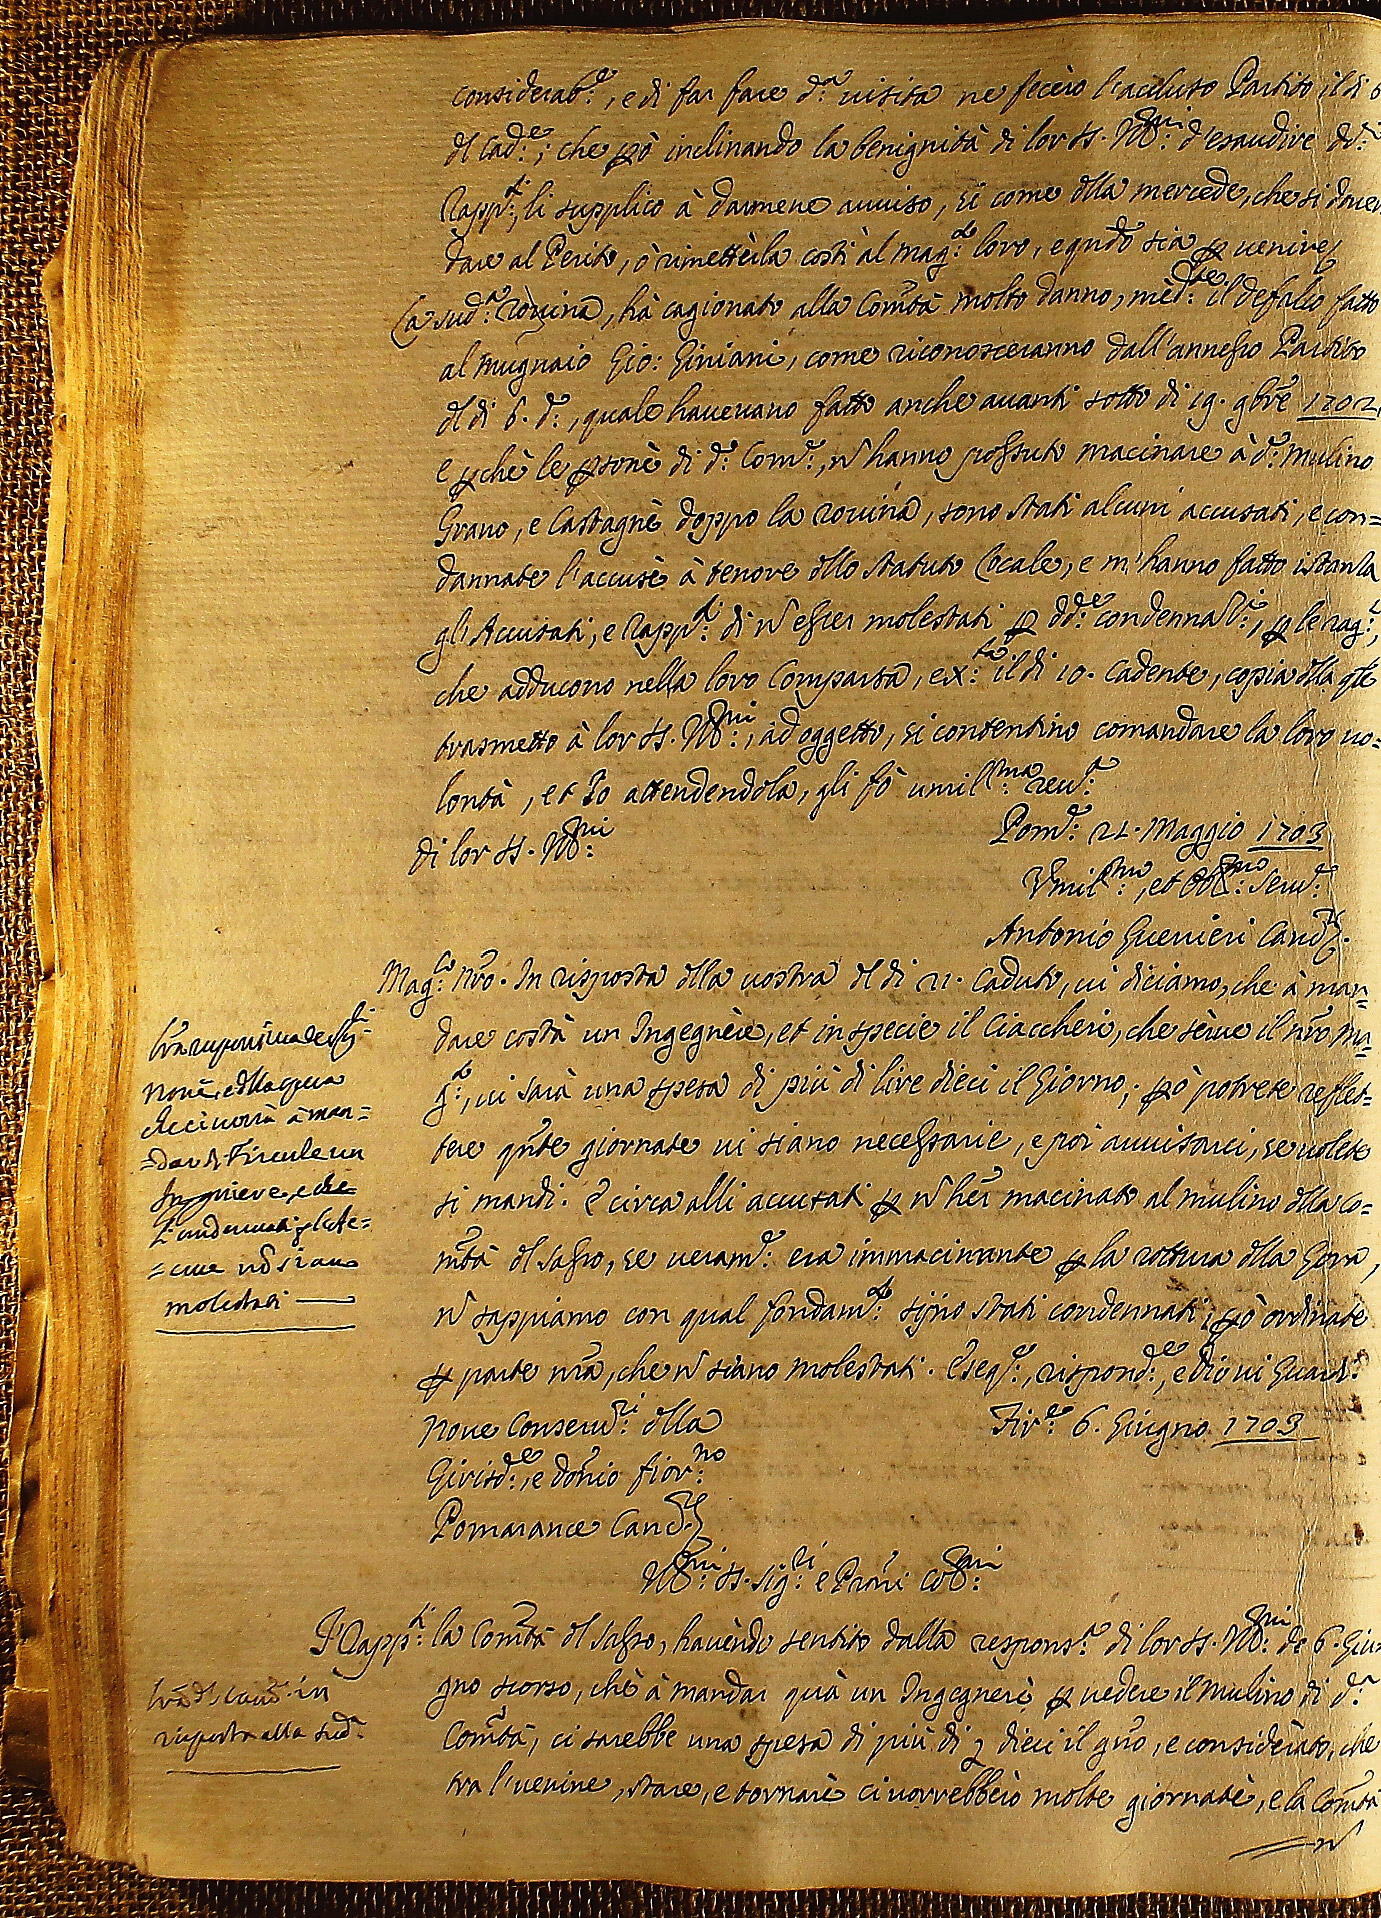 considerab.e, e di far fare d.a visita ne fecèro l'accluso Partito il dì 6
dl Cad.e; che però inclinando la benignità di lor SS. Ill.mi d'esaudire dd.i
Rapp.ti, li supplico à darmene avviso, si come dlla mercede, che si dover
dare al Perito, ò rimettèrla costì al mag.to loro, e qndo sia per venire
La sud.a rovina, hà cagionato alla Comtà molto danno, mèd.te il defalco fatto
al mugnaio Gio: Giniani, come riconosceranno dall'annesso Partito
dl dì 6. d.o, quale havevano fatto anche avanti sotto dì 19. 9bre 1702,
e perchè le persone di d.a Com.tà, n hanno possuto macinare à d.o Mulino
Grano, e Castagne doppo la rovina, sono stati alcuni accusati, e con=
dannate l'accuse à tenore dllo statuto Locale, e m'hanno fatto istanza
gl'Accusati, e Rapp.ti di n esser molestati per dd.e condennat.i, per le rag.i,
che adducono nella loro Comparsa, ex.ta il dì 10. Cadente, copia dlla qle
trasmetto à lor SS. Ill.mi, ad oggetto, si contentino comandare la loro vo=
lontà, et Io attendendola, gli fò umil.ma rev.a
di lor SS. Ill.mi
Pom.e 21. Maggio 1703
Vmil.mo, et Obl.mo Serv.e
Antonio Guerrieri Canc.re
Mag.co Nro. In risposta dlla vostra dl dì 21. Caduto, vi diciamo, che à man=
dare costà un Ingegnère, et in specie il Ciaccheri, che sèrve il nro Ma=
g.to, vi sarà una spesa di più di lire dieci il Giorno; però potrete reflet=
tere qnte giornate vi siano necessarie, e poi avvisarci, se volete
si mandi. E circa alli accusati per n her macinato al mulino dlla Co=
mtà dl Sasso, se veram.te era immacinante per la rottura dlla Gora,
n sappiamo con qual fondam.to sijno stati condennati; però ordinate
per parte nra, che n siano molestati. Eseg.e, rispond.e, e Dio vi Guardi
Nove Conserv.ri dlla
Girisd.e, e domio fior.no
Pomarance Canc.re
Fir.e 6. Giugno 1703
lra responsiva de SS.ri
Nove, e dlla spesa
che ci vorrà à man=
=dar di Firenze un
Ingegniere, e che
Condennati per l'Ac=
=cuse nō siano
molestati
Ill.mi SS. Sig.ri e Proni Col.mi
I Rapp.ti la Comtà dl Sasso, havèndo sentito dalla respons.a di lor SS. Ill.mi de 6. Giu=
gno scorso, chè à mandar quà un Ingegnerè per vedere il Mulino di d.a
Comtà, ci sarebbe una spesa di più di £ dieci il gno, e consideràto, che
tra l'venire, stare, e tornare ci vorrebbèro molte giornatè, e la Comtà
n
lra dl Canc. in
risposta alla sud.a